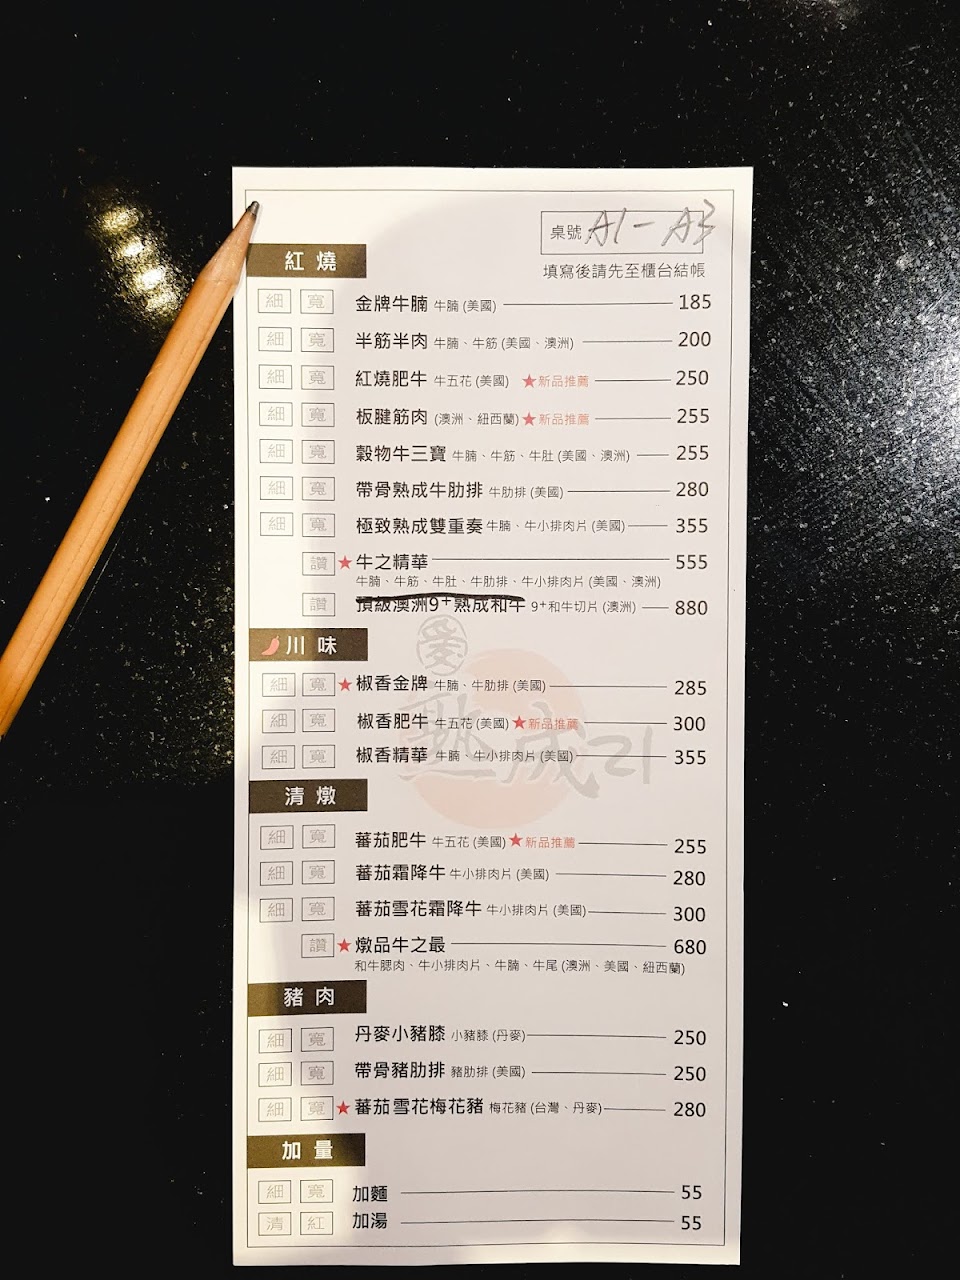 桌號：A1-A3
填寫後請先至櫃台結帳
紅燒
細 寬 金牌牛腩 牛腩 (美國) 185
細 寬 半筋半肉 牛腩、牛筋 (美國、澳洲) 200
細 寬 紅燒肥牛 牛五花 (美國) ★新品推薦 250
細 寬 板腱筋肉 (澳洲、紐西蘭) ★新品推薦 255
細 寬 穀物牛三寶 牛腩、牛筋、牛肚 (美國、澳洲) 255
細 寬 帶骨熟成牛肋排 牛肋排 (美國) 280
細 寬 極致熟成雙重奏 牛腩、牛小排肉片 (美國) 355
讚 ★牛之精華 555
牛腩、牛筋、牛肚、牛肋排、牛小排肉片 (美國、澳洲)
讚 頂級澳洲9⁺熟成和牛 9⁺和牛切片 (澳洲) 880
川味
細 寬 ★椒香金牌 牛腩、牛肋排 (美國) 285
細 寬 椒香肥牛 牛五花 (美國) ★新品推薦 300
細 寬 椒香精華 牛腩、牛小排肉片 (美國) 355
愛熟成21
清燉
細 寬 蕃茄肥牛 牛五花 (美國) ★新品推薦 255
細 寬 蕃茄霜降牛 牛小排肉片 (美國) 280
細 寬 蕃茄雪花霜降牛 牛小排肉片 (美國) 300
讚 ★燉品牛之最 680
和牛腮肉、牛小排肉片、牛腩、牛尾 (澳洲、美國、紐西蘭)
豬肉
細 寬 丹麥小豬膝 小豬膝 (丹麥) 250
細 寬 帶骨豬肋排 豬肋排 (美國) 250
細 寬 ★蕃茄雪花梅花豬 梅花豬 (台灣、丹麥) 280
加量
細 寬 加麵 55
清 紅 加湯 55